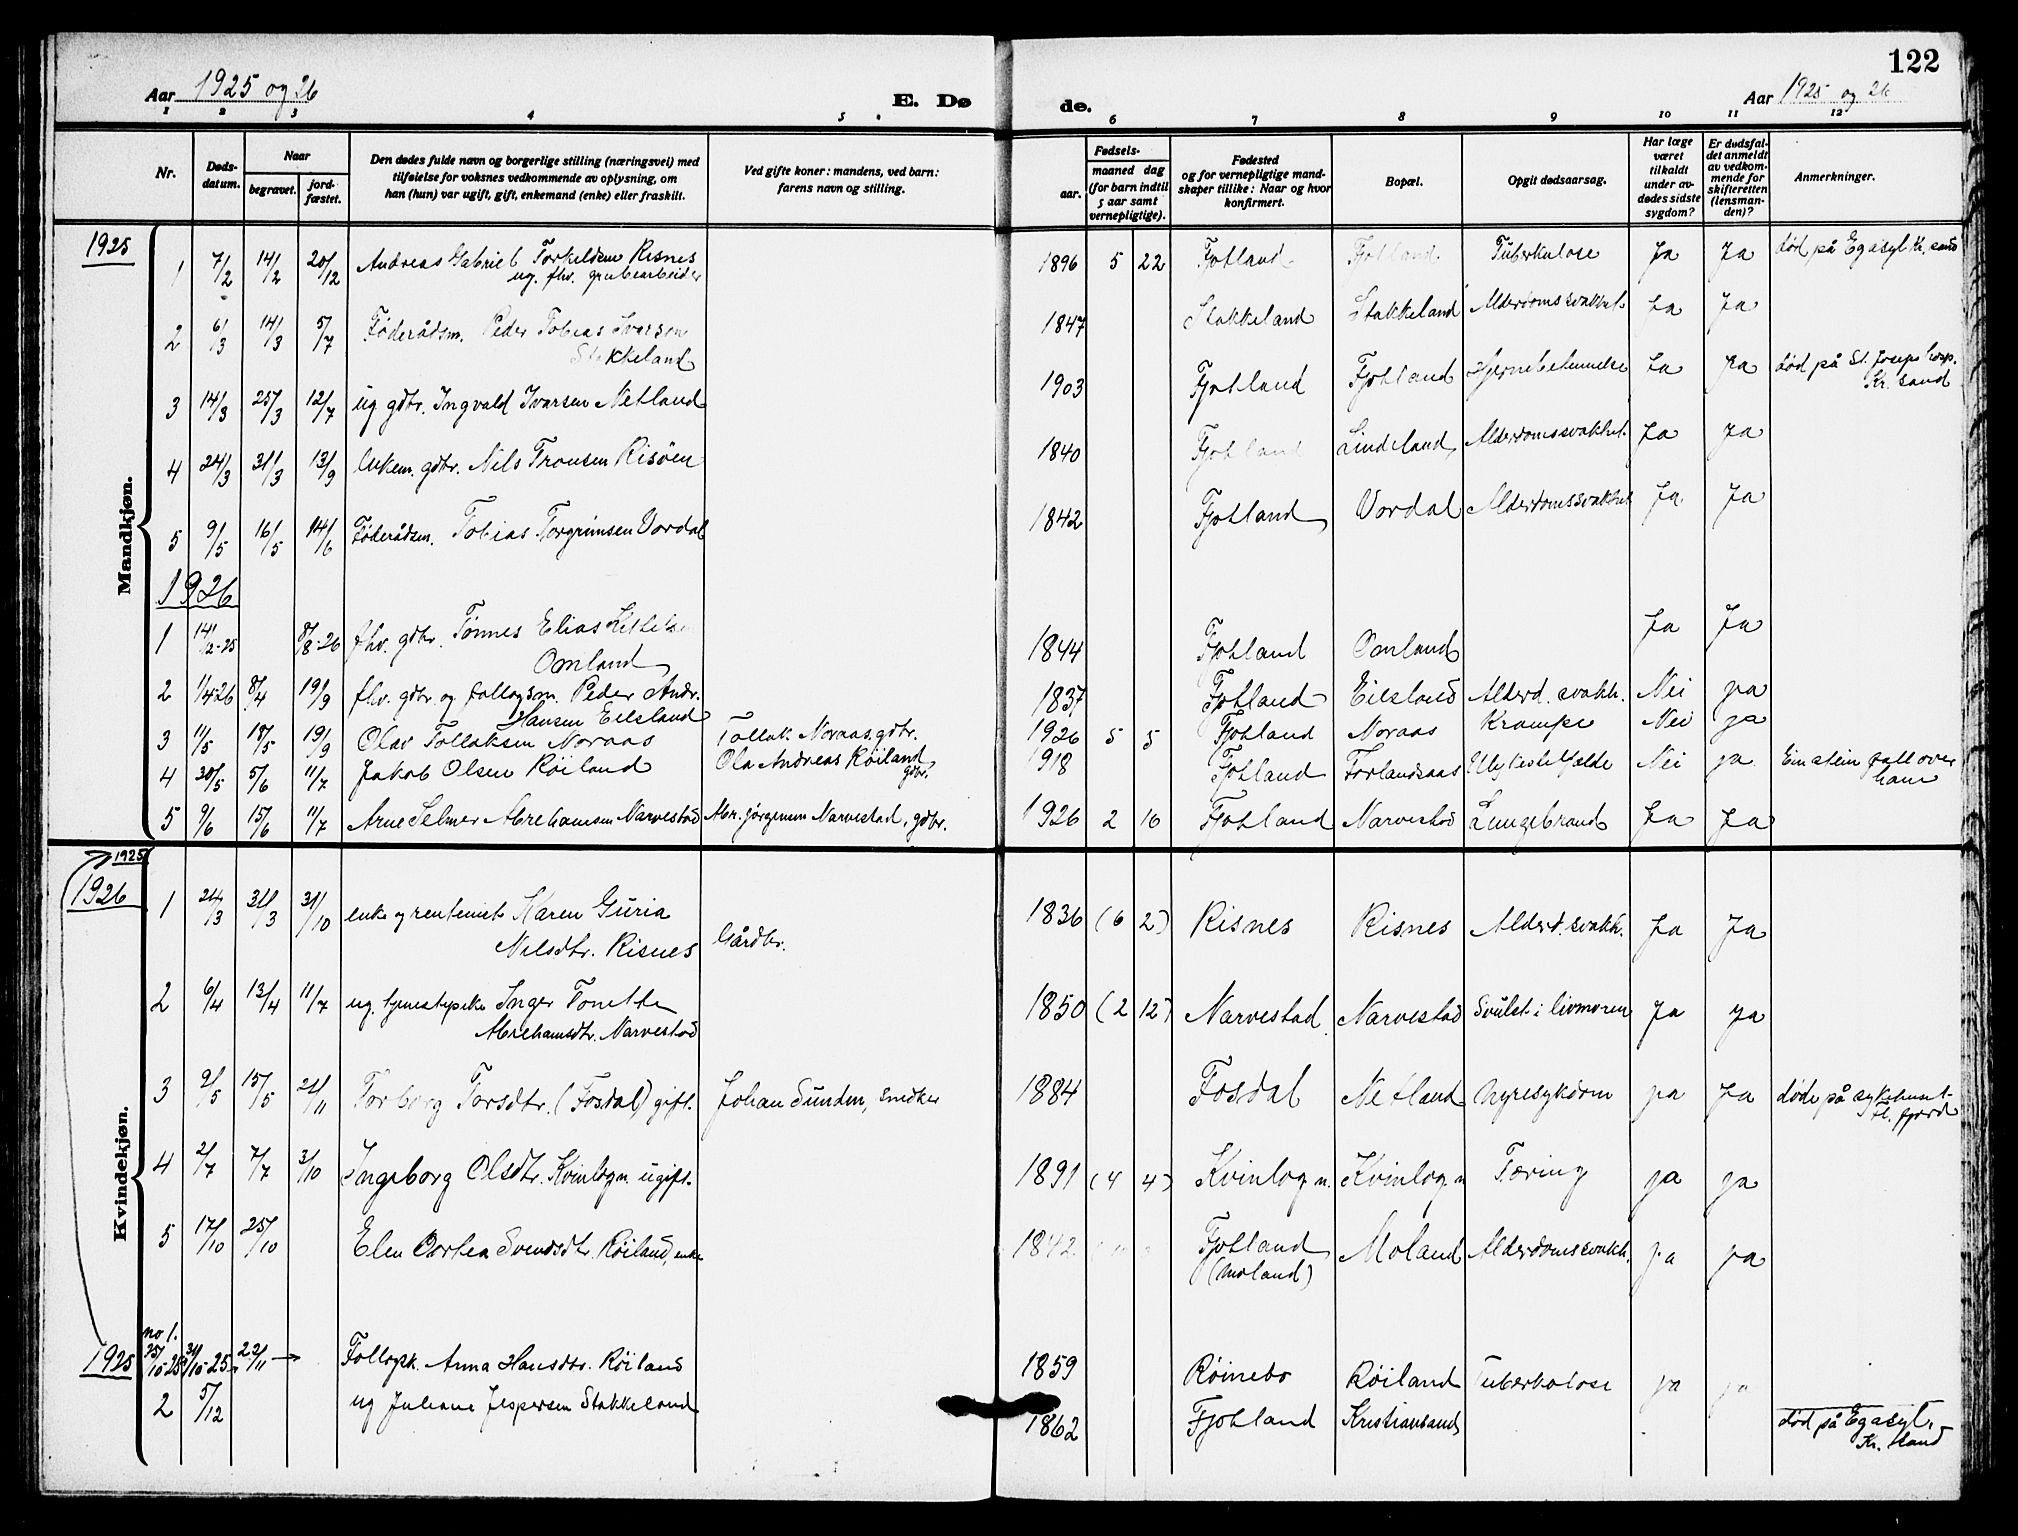 122
Aar 1925 og 26
E. Dø
de.
Aar 1925 og 26
1 2 3 4 5 6 7 8 9 10 11 12
Nr.
Døds-
datum.
Naar
begravet.
jord-
fæstet.
Den dødes fulde navn og borgerlige stilling (næringsvei) med
tilføielse for voksnes vedkommende av oplysning, om
han (hun) var ugift, gift, enkemand (enke) eller fraskilt.
Ved gifte koner: mandens, ved barn:
farens navn og stilling.
Fødsels-
aar.
maaned dag
(for barn indtil
5 aar samt
vernepligtige).
Fødested
og for vernepligtige mand-
skaper tillike: Naar og hvor
konfirmert.
Bopæl.
Opgit dødsaarsag.
Har læge
været
tilkaldt
under av-
dødes sidste
sygdom?
Er dødsfal-
det anmeldt
av vedkom-
mende for
skifteretten
(lensman-
den)?
Anmerkninger.
Mandkjøn.
1925
1 7/2 14/2 20/12 Andreas Gabriel Torkeldsen Risnes 1896 5 22 Fjotland Fjotland Tuberkulose Ja Ja død på Egasyl Kr. sand
ug. fhv. grubearbeider
2 6/3 14/3 5/7 Føderådsm. Peder Tobias Ivarsen 1847 Stakkeland Stakkeland Alderdomssvakhet Ja Ja
Stakkeland
3 14/3 25/3 12/7 ug gdbr. Ingvald Ivarsen Netland 1903 Fjotland Fjotland Hjernebetennelse Ja Ja død på St. Joseps hosp.
Kr. sand
4 24/3 31/3 13/9 enkem. gdbr. Nils Tronsen Risöen 1840 Fjotland Lindeland Alderdomssvakhet Ja Ja
5 9/5 16/5 14/6 Føderådsm. Tobias Torgrimsen Vordal 1842 Fjotland Vordal Alderdomssvakhet Ja Ja
1926
1 14/12-25 8/8-26 fhv. gdbr. Tønnes Elias 1844 Fjotland Omland Ja Ja
Omland
2 1/4 26 8/4 19/9 fhv. gdbr. og fattigsm. Peder Andr. 1837 Fjotland Eilsland Alderd. svakh. Nei ja
Hansen Eilsland
3 11/5 18/5 19/9 Olav Tollaksen Noraas Tollak Noraas, gdbr. 1926 5 5 Fjotland Noraas Krampe Nei ja
4 30/5 5/6 11/7 Jakob Olsen Røiland Ola Andreas Røiland gdbr. 1918 Fjotland Forlandsaas Ulykkestilfælde Nei ja Ein stein fall over
ham
5 9/6 15/6 11/7 Arne Selmer Abrehamsen Narvestad Abr. Jørgensen Narvestad, gdbr. 1926 2 16 Fjotland Narvestad Lungebrand Ja Ja
Kvindekjøn.
1925
1926
1 24/3 31/3 31/10 enke og rentenist Karen Guria 1836 (6 2) Risnes Risnes Alderd. svakh. Ja Ja
Nilsdtr. Risnes Gårdbr.
2 6/4 13/4 11/7 ug. tjenestepike Inger Tonette 1850 (2 12) Narvestad Narvestad Svulst i livmoren Ja Ja
Abrehamsdtr. Narvestad
3 9/5 15/5 21/11 Torborg Torsdtr. (Fosdal) gift. Johan Sunden, snedker 1884 Fosdal Netland Nyresykdom ja Ja døde på sykehuset
Fl. fjord
4 2/7 7/7 3/10 Ingeborg Olsdtr. Kvinlog n. ugift. 1891 (4 4) Kvinlog n. Kvinlog n Tæring ja ja
5 17/10 25/10 Elen Dortea Svendsdtr. Røiland, enke 1842 Fjotland Moland Alderdomssvakh. ja ja
(Moland)
no 1.
1925 25/10-25 31/10-25 22/11 Fattigk. Anna Hansdtr. Røiland 1859 Røinebo Røiland Tuberkulose ja ja
2 5/12 ug Juliane Jespersen Stakkeland 1862 Fjotland Kristiansand død på Egasyl,
Kr. Sand